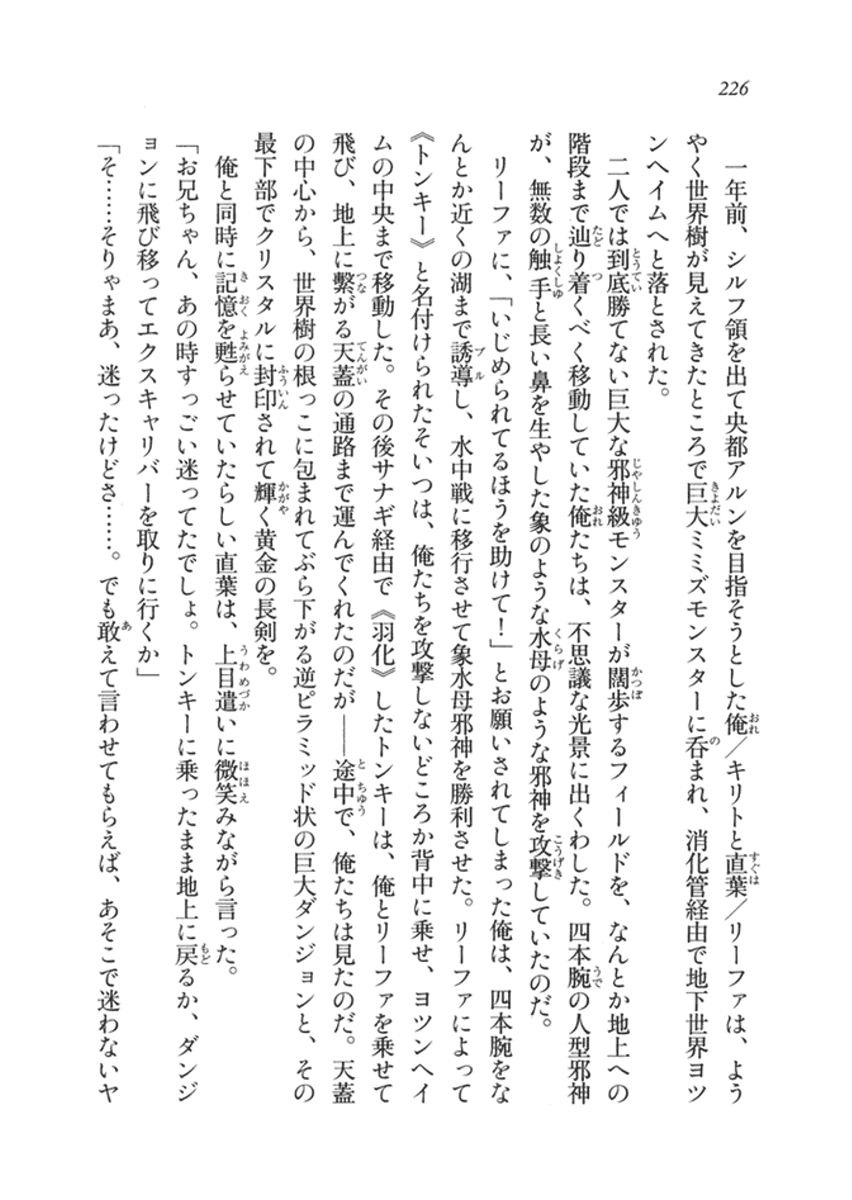 226
一年前、シルフ領を出て央都アルンを目指そうとした俺／キリトと直葉／リーファは、よう
やく世界樹が見えてきたところで巨大ミミズモンスターに呑まれ、消化管経由で地下世界ヨツ
ンヘイムへと落とされた。
二人では到底勝てない巨大な邪神級モンスターが闊歩するフィールドを、なんとか地上への
階段まで辿り着くべく移動していた俺たちは、不思議な光景に出くわした。四本腕の人型邪神
が、無数の触手と長い鼻を生やした象のような水母のような邪神を攻撃していたのだ。
リーファに、「いじめられてるほうを助けて！」とお願いされてしまった俺は、四本腕をな
んとか近くの湖まで誘導し、水中戦に移行させて象水母邪神を勝利させた。リーファによって
《トンキー》と名付けられたそいつは、俺たちを攻撃しないどころか背中に乗せ、ヨツンヘイ
ムの中央まで移動した。その後サナギ経由で《羽化》したトンキーは、俺とリーファを乗せて
飛び、地上に繋がる天蓋の通路まで運んでくれたのだが――途中で、俺たちは見たのだ。天蓋
の中心から、世界樹の根っこに包まれてぶら下がる逆ピラミッド状の巨大ダンジョンと、その
最下部でクリスタルに封印されて輝く黄金の長剣を。
俺と同時に記憶を甦らせていたらしい直葉は、上目遣いに微笑みながら言った。
「お兄ちゃん、あの時すっごい迷ってたでしょ。トンキーに乗ったまま地上に戻るか、ダンジ
ョンに飛び移ってエクスキャリバーを取りに行くか」
「そ……そりゃまあ、迷ったけどさ……。でも敢えて言わせてもらえば、あそこで迷わないヤ